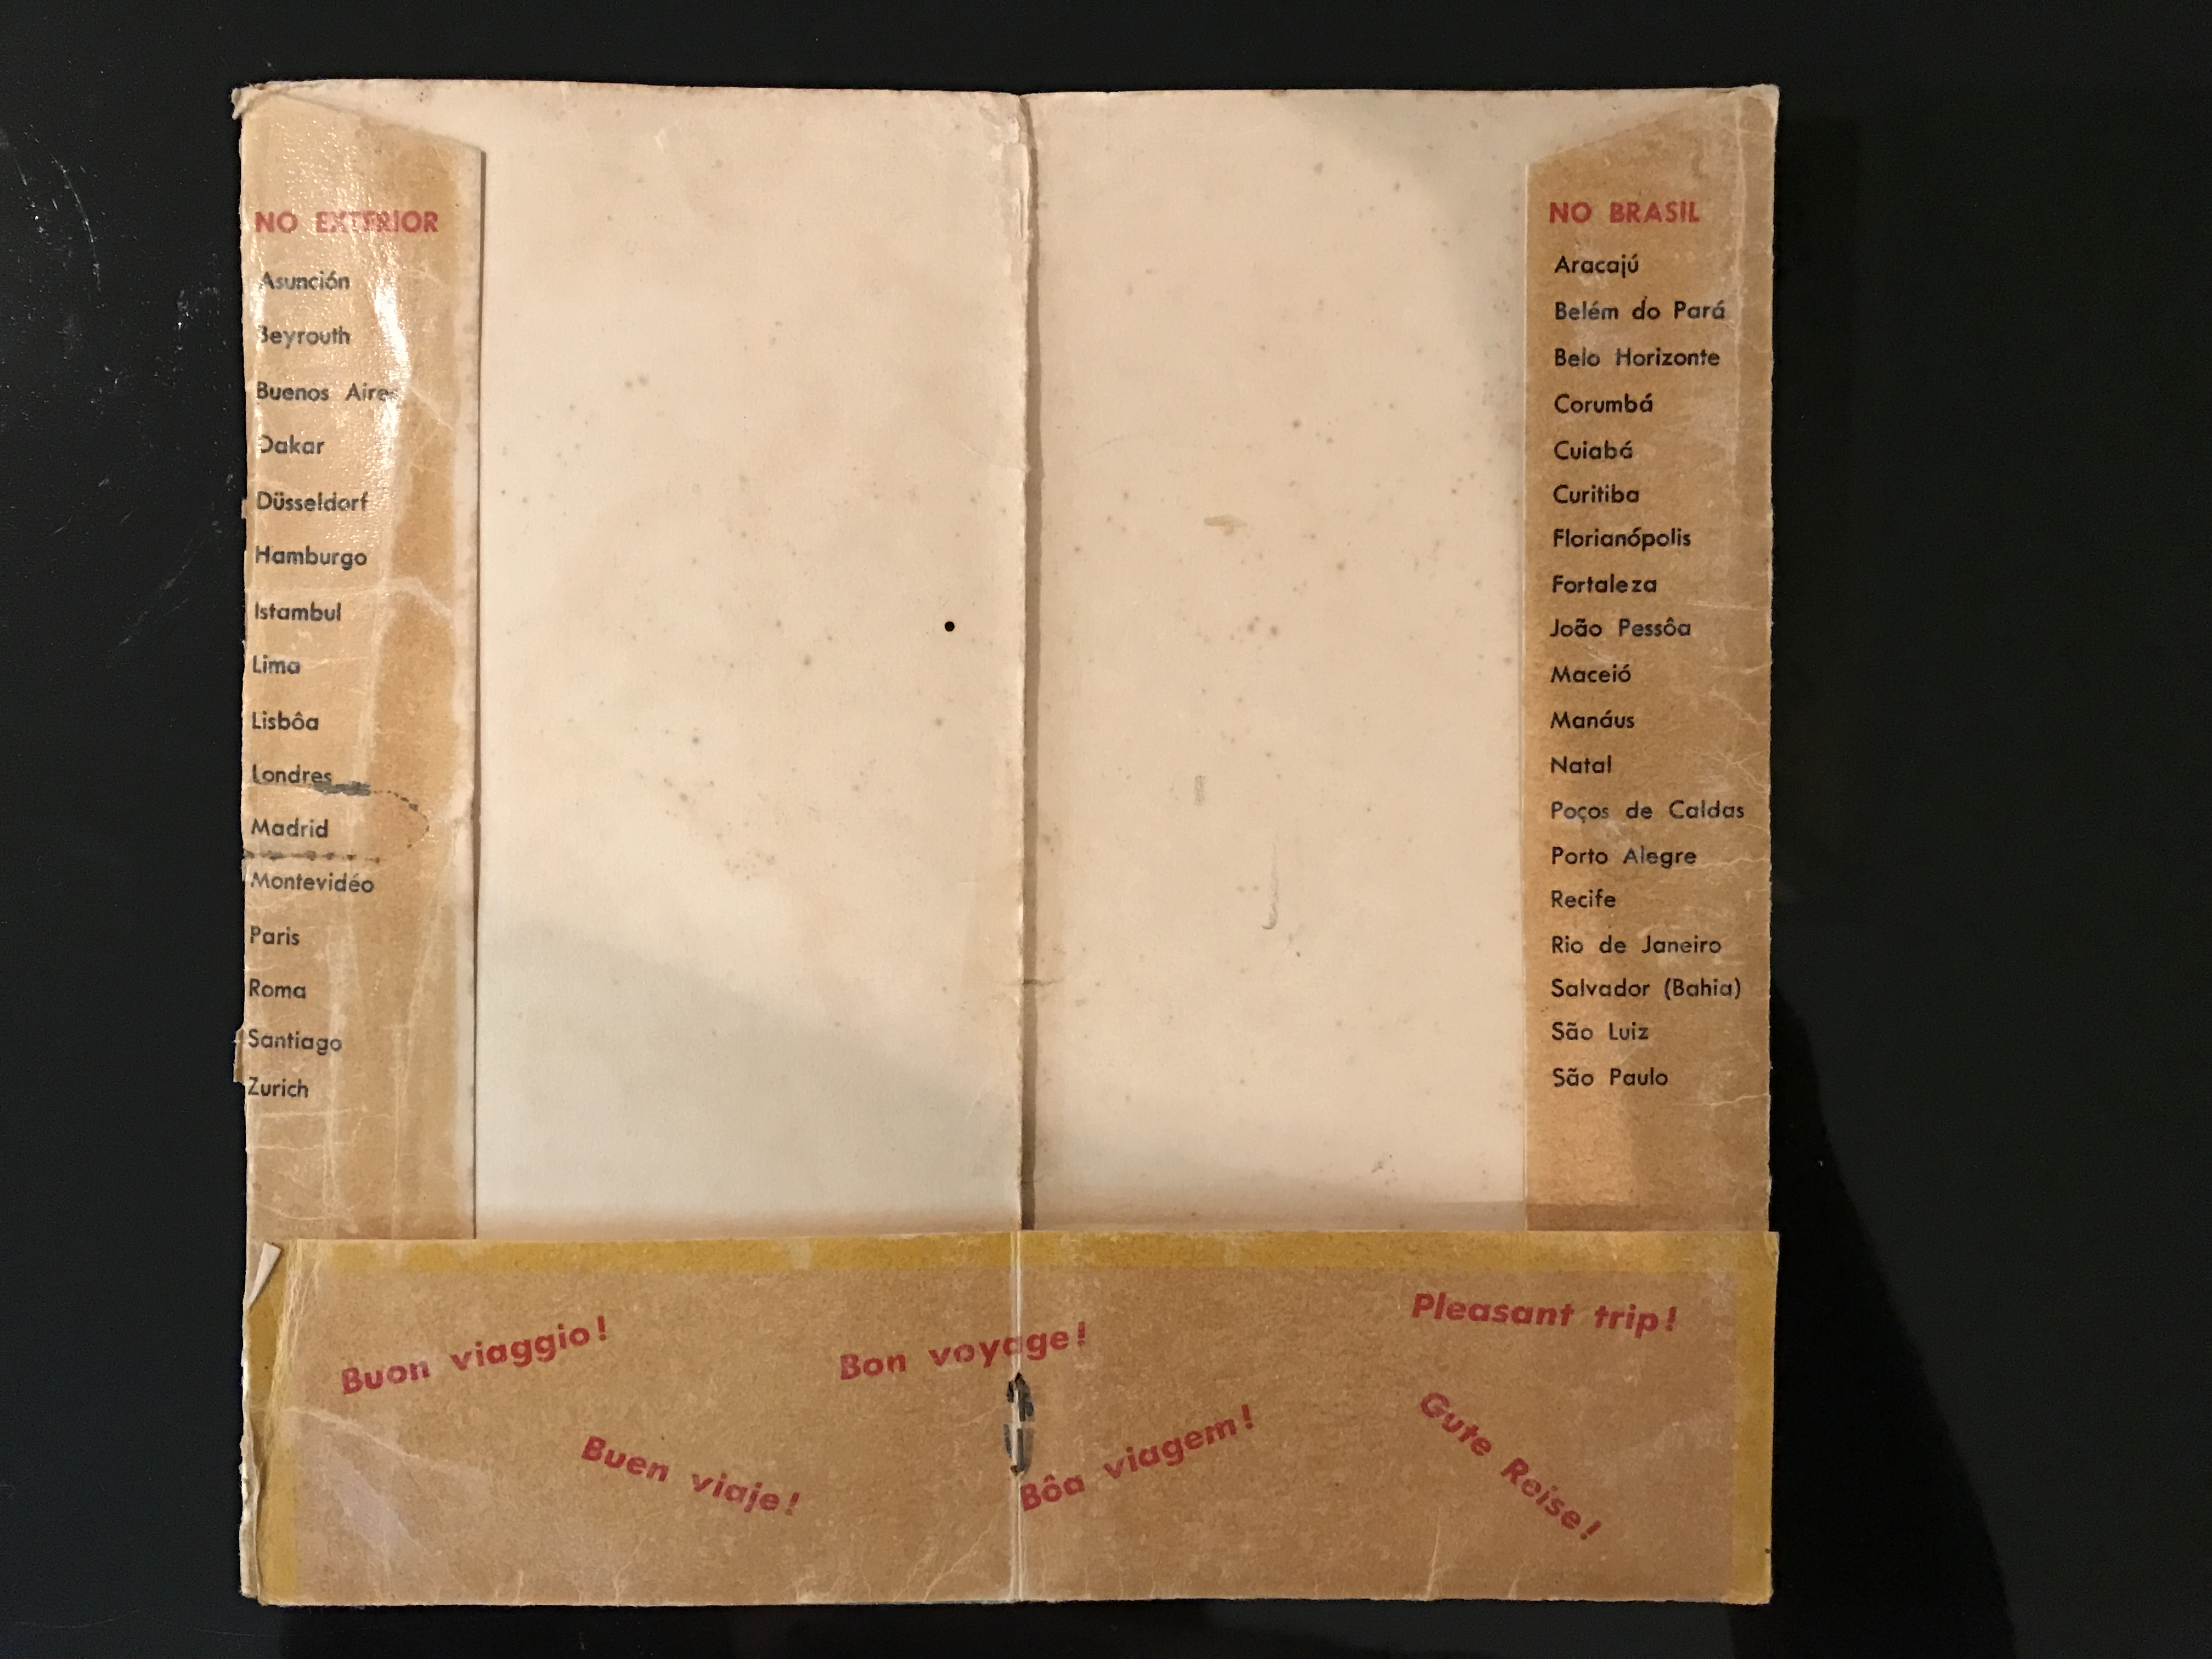 NO EXTERIOR
Asunción
Beyrouth
Buenos Aires
Dakar
Düsseldorf
Hamburgo
Istambul
Lima
Lisbôa
Londres
Madrid
Montevidéo
Paris
Roma
Santiago
Zurich
NO BRASIL
Aracajú
Belém do Pará
Belo Horizonte
Corumbá
Cuiabá
Curitiba
Florianópolis
Fortaleza
João Pessôa
Maceió
Manáus
Natal
Poços de Caldas
Porto Alegre
Recife
Rio de Janeiro
Salvador (Bahia)
São Luiz
São Paulo
Buon viaggio!
Bon voyage!
Pleasant trip!
Buen viaje!
Bôa viagem!
Gute Reise!